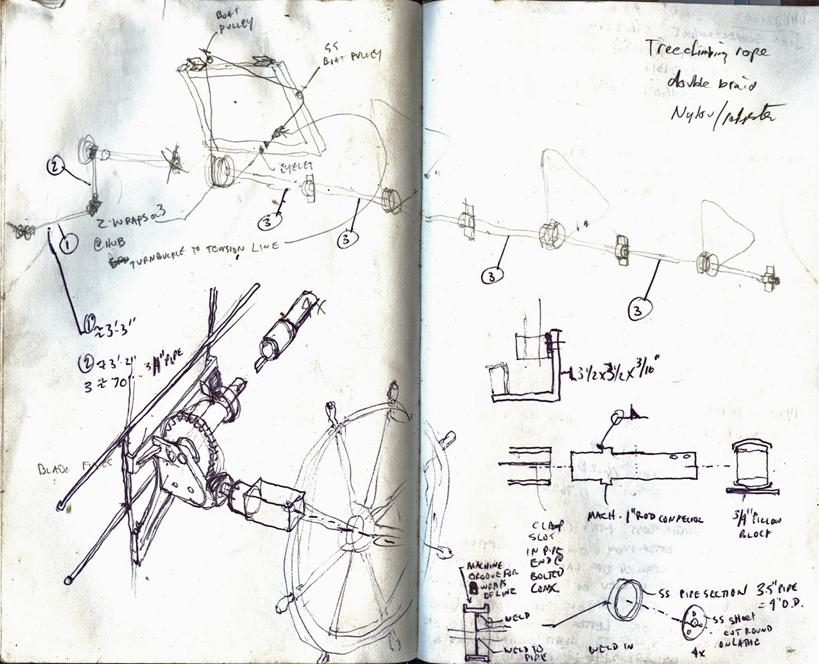 BOAT
PULLEY
SS
BOAT PULLEY
2
1
EYELET
2-WRAPS
@ HUB
3
3
TURNBUCKLE TO TENSION LINE
① ≈3'-3"
3/4" PIPE
3 ≈ 70"
4X
BLADE
Treeclimbing rope
double braid
Nylon/polyester
3
3
3 1/2 x 3 1/2 x 3/16"
MACH. 1" ROD CONNECTOR
3/4" PILLOW
BLOCK
CLAMP
SLOT
IN PIPE
END @
BOLTED
CONX.
MACHINE
GROOVE FOR
WRAPS
OF LINE
WELD
WELD TO
PIPE
WELD IN
SS PIPE SECTION 3.5" PIPE
= 4" O.D.
SS SHEET
CUT ROUND
ON LATHE
4x